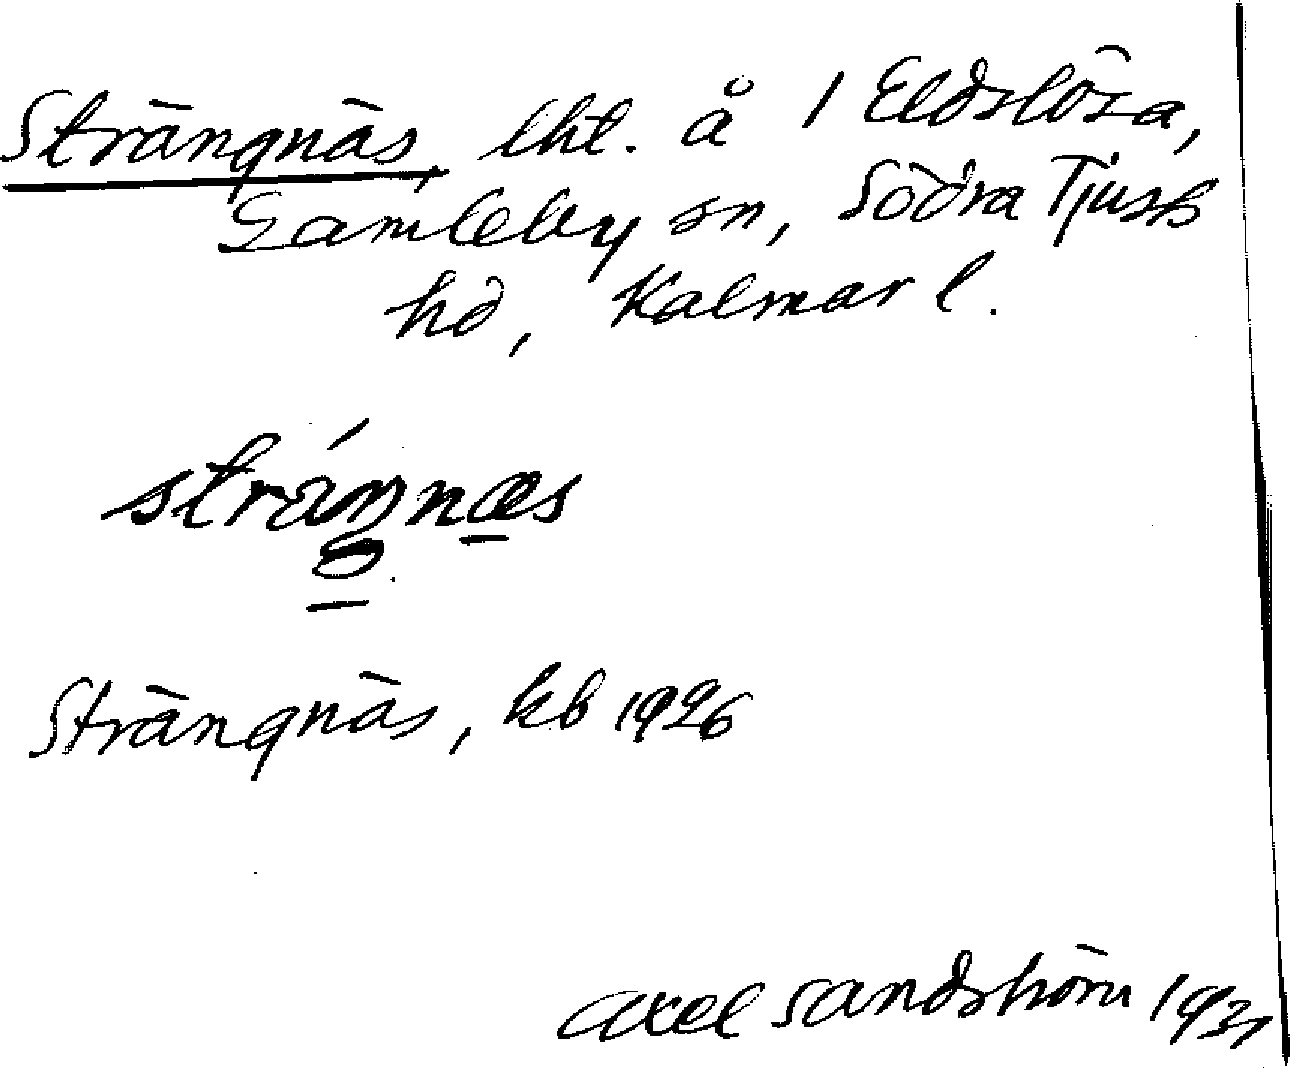 Strängnäs, lht. å 1 Eldslösa,
Gamleby sn, Södra Tjusts
hd, Kalmar l.
stráŋnæs
Strängnäs, kb 1926
Axel Sandström 1931